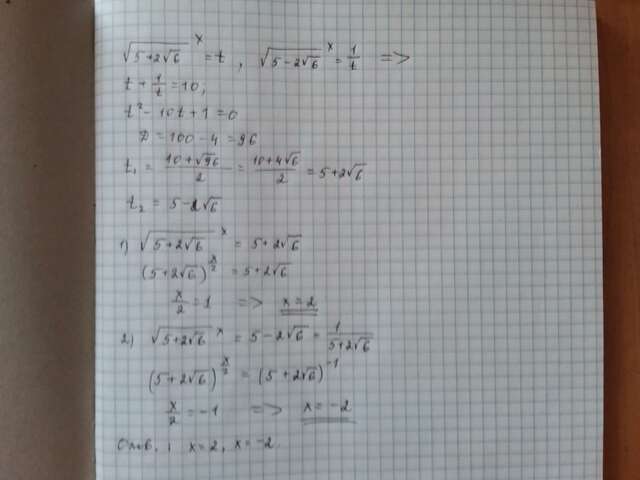 √(5+2√6)^x = t, √(5-2√6)^x = 1/t =>
t + 1/t = 10,
t² - 10t + 1 = 0
D = 100 - 4 = 96
t₁ = (10+√96)/2 = (10+4√6)/2 = 5+2√6
t₂ = 5-2√6
1) √(5+2√6)^x = 5+2√6
(5+2√6)^(x/2) = 5+2√6
x/2 = 1 => x = 2
2) √(5+2√6)^x = 5-2√6 = 1/(5+2√6)
(5+2√6)^(x/2) = (5+2√6)^-1
x/2 = -1 => x = -2
x=2, x=-2